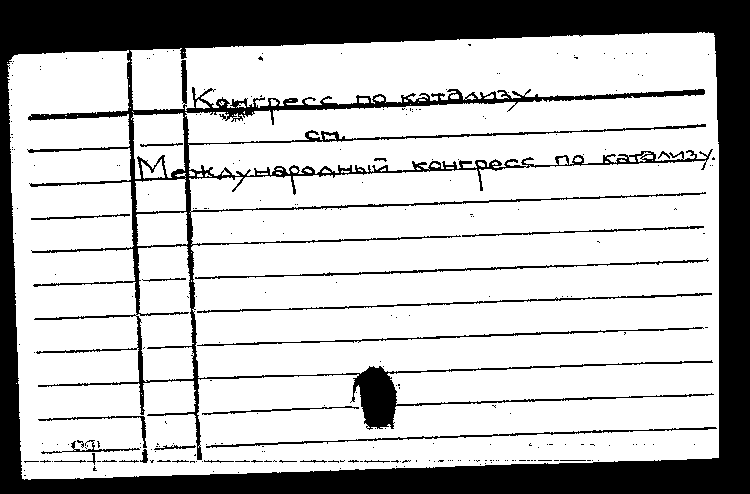 Конгресс по катализу.
см.
Международный конгресс по катализу.